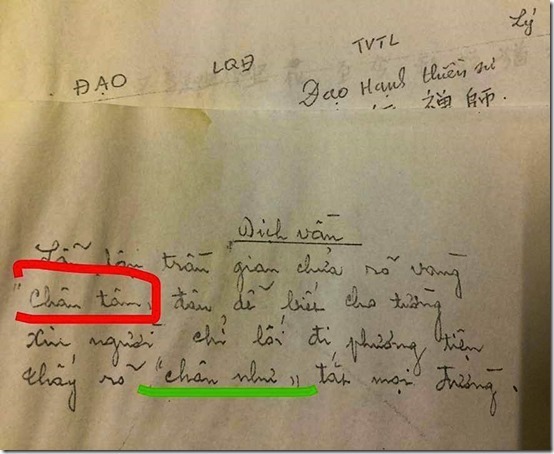 Lý
TVTL
LQĐ
ĐẠO
Đạo Hạnh thiền sư
禪師.
Dịch vần
Lẫn lộn trần gian chửa rõ vàng
"Chân tâm„ đâu dễ biết cho tường
Xin người chỉ lối đi phương tiện
Thấy rõ "chân như„ tắt mọi đường.